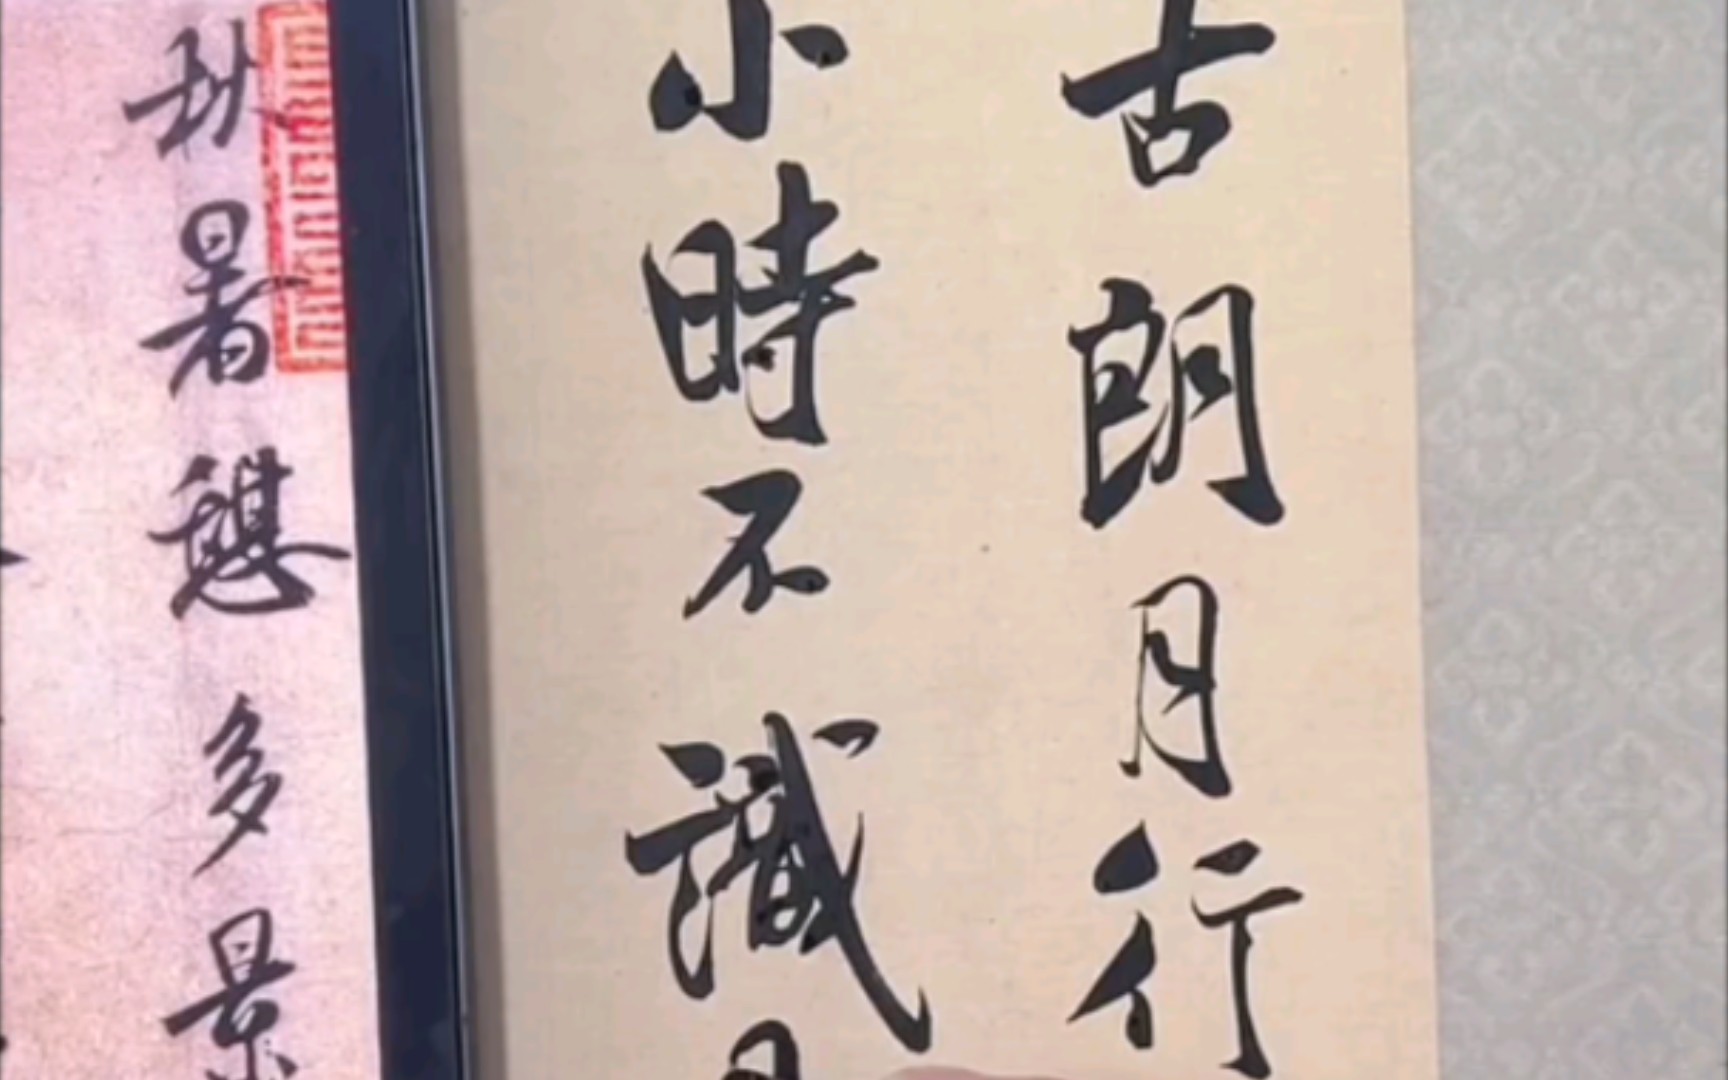 古朗月行
小時不識月
秋暑憩多景